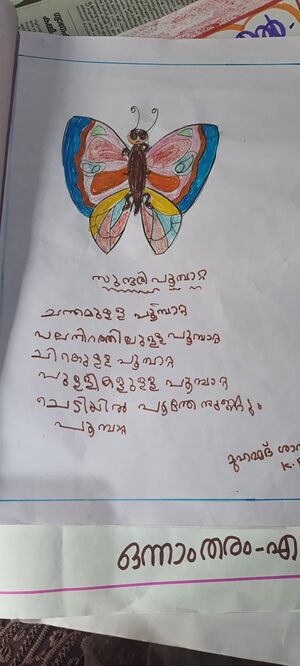 സുന്ദരി പൂമ്പാറ്റ
ചന്തമുള്ള പൂമ്പാറ്റ
പലനിറത്തിലുള്ള പൂമ്പാറ്റ
ചിറകുള്ള പൂമ്പാറ്റ
പുള്ളികളുള്ള പൂമ്പാറ്റ
ചെടിയിൽ
പൂമ്പാറ്റ
മുഹമ്മദ്
K.
ഒന്നാംതരം-എ